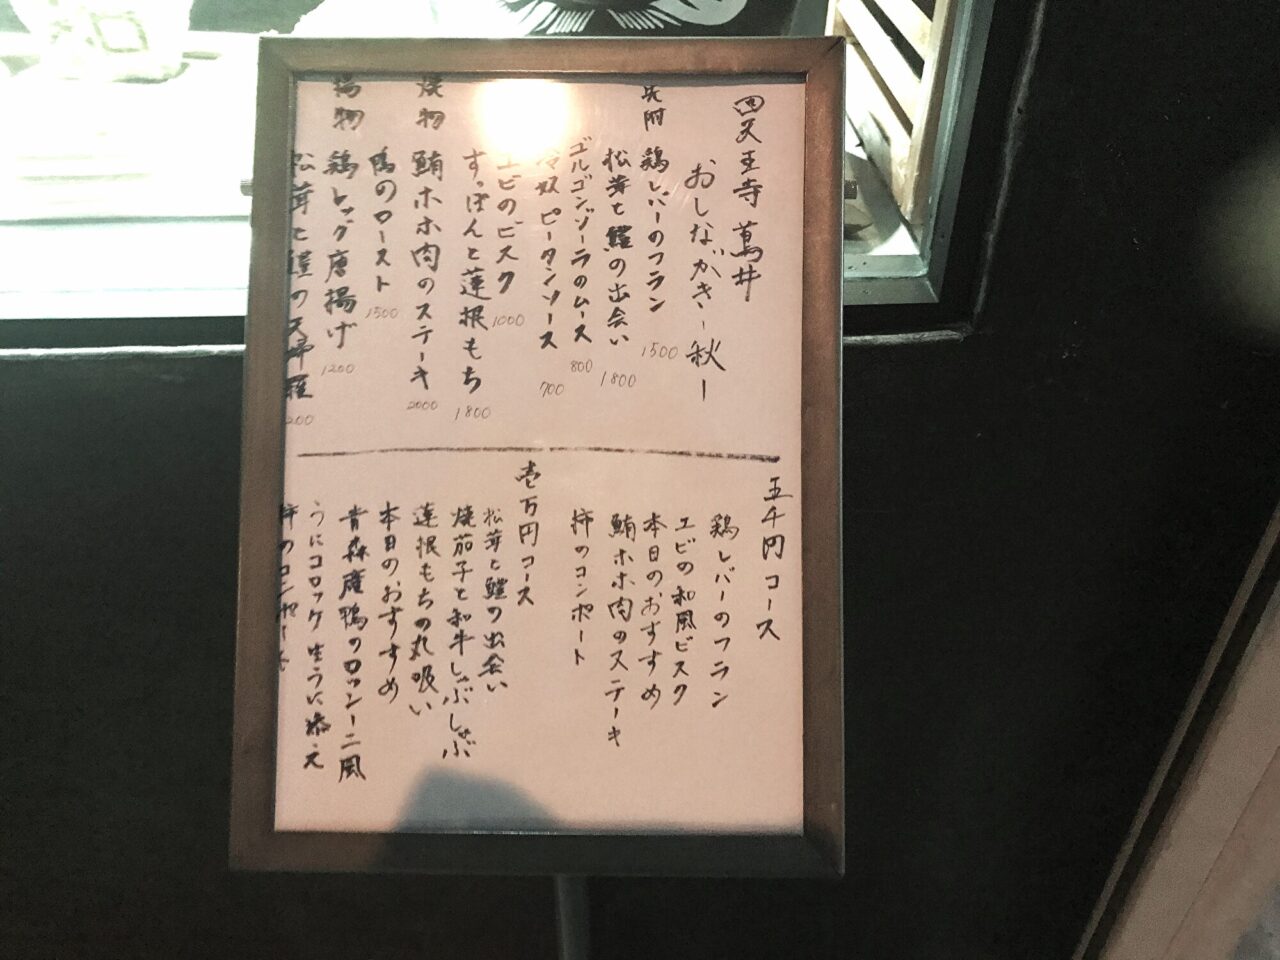 四天王寺 蔦井
おしながき ー秋ー
先附
鶏レバーのフラン 1500
松茸と鱧の出会い 1800
ゴルゴンゾーラのムース 800
冷奴 ピータンソース 700
エビのビスク 1000
すっぽんと蓮根もち 1800
焼物
鮪ホホ肉のステーキ 2000
鴨のロースト 1500
揚物
鶏レッグ唐揚げ 1200
松茸と鱧の天婦羅
五千円コース
鶏レバーのフラン
エビの和風ビスク
本日のおすすめ
鮪ホホ肉のステーキ
柿のコンポート
壱万円コース
松茸と鱧の出会い
焼茄子と和牛しゃぶしゃぶ
蓮根もちの丸吸い
本日のおすすめ
青森産鴨のロッシーニ風
うにコロッケ 生うに添え
柿のコンポート